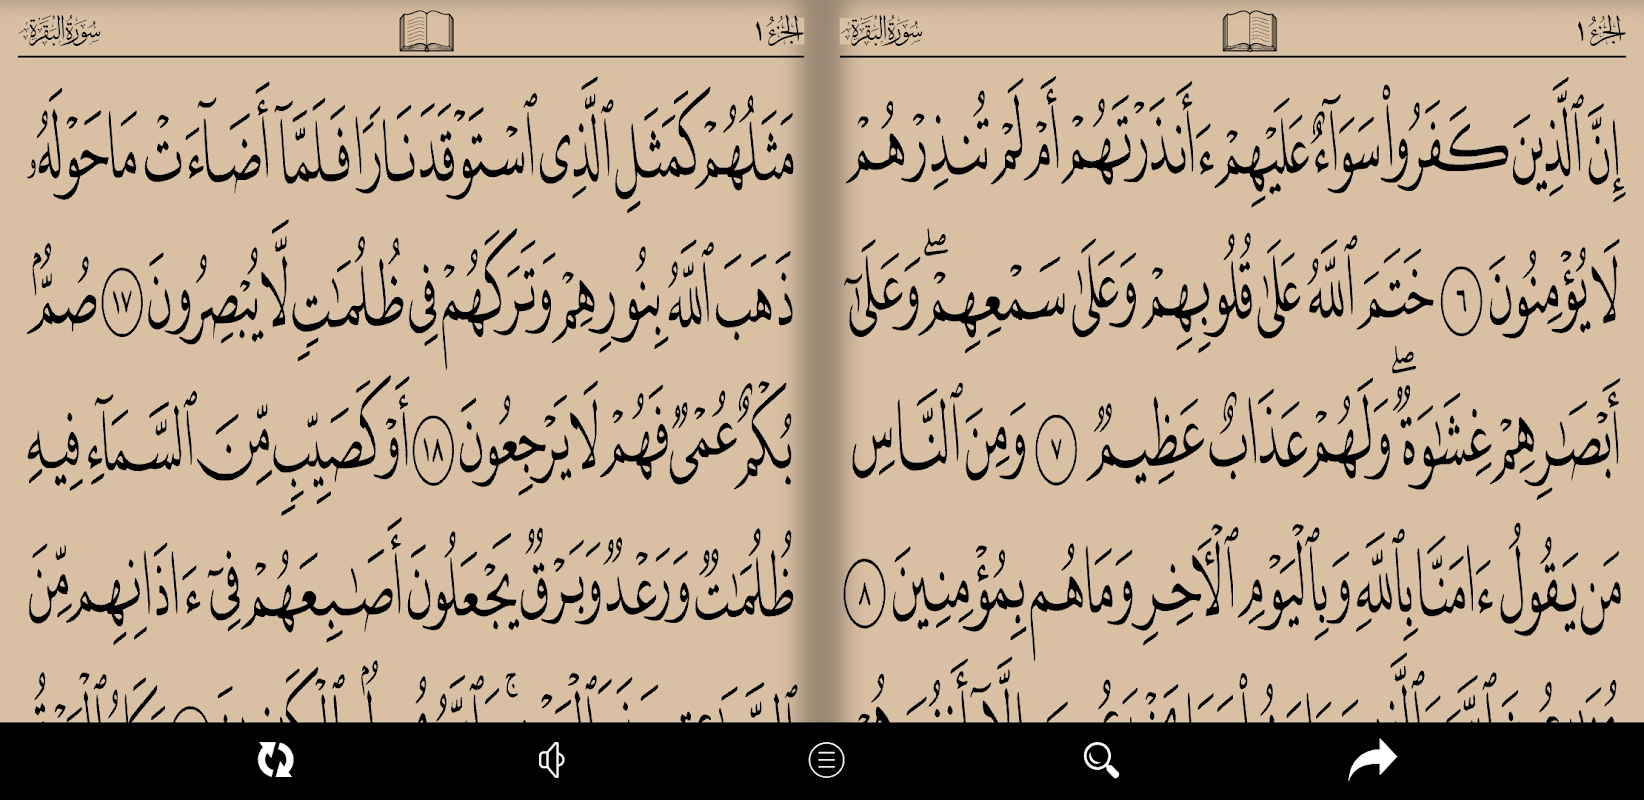 الجزء ١
سورة البقرة
إِنَّ ٱلَّذِينَ كَفَرُوا۟ سَوَآءٌ عَلَيْهِمْ ءَأَنذَرْتَهُمْ أَمْ لَمْ تُنذِرْهُمْ
لَا يُؤْمِنُونَ ٦ خَتَمَ ٱللَّهُ عَلَىٰ قُلُوبِهِمْ وَعَلَىٰ سَمْعِهِمْ ۖ وَعَلَىٰٓ
أَبْصَٰرِهِمْ غِشَٰوَةٌ ۖ وَلَهُمْ عَذَابٌ عَظِيمٌ ٧ وَمِنَ ٱلنَّاسِ
مَن يَقُولُ ءَامَنَّا بِٱللَّهِ وَبِٱلْيَوْمِ ٱلْءَاخِرِ وَمَا هُم بِمُؤْمِنِينَ ٨
الجزء ١
سورة البقرة
مَثَلُهُمْ كَمَثَلِ ٱلَّذِى ٱسْتَوْقَدَ نَارًا فَلَمَّآ أَضَآءَتْ مَا حَوْلَهُۥ
ذَهَبَ ٱللَّهُ بِنُورِهِمْ وَتَرَكَهُمْ فِى ظُلُمَٰتٍ لَّا يُبْصِرُونَ ١٧ صُمٌّۢ
بُكْمٌ عُمْىٌ فَهُمْ لَا يَرْجِعُونَ ١٨ أَوْ كَصَيِّبٍ مِّنَ ٱلسَّمَآءِ فِيهِ
ظُلُمَٰتٌ وَرَعْدٌ وَبَرْقٌ يَجْعَلُونَ أَصَٰبِعَهُمْ فِىٓ ءَاذَانِهِم مِّنَ